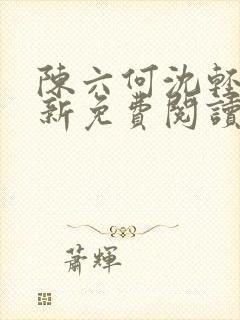 陳六何沈輕
新免費閱讀
蕭輝